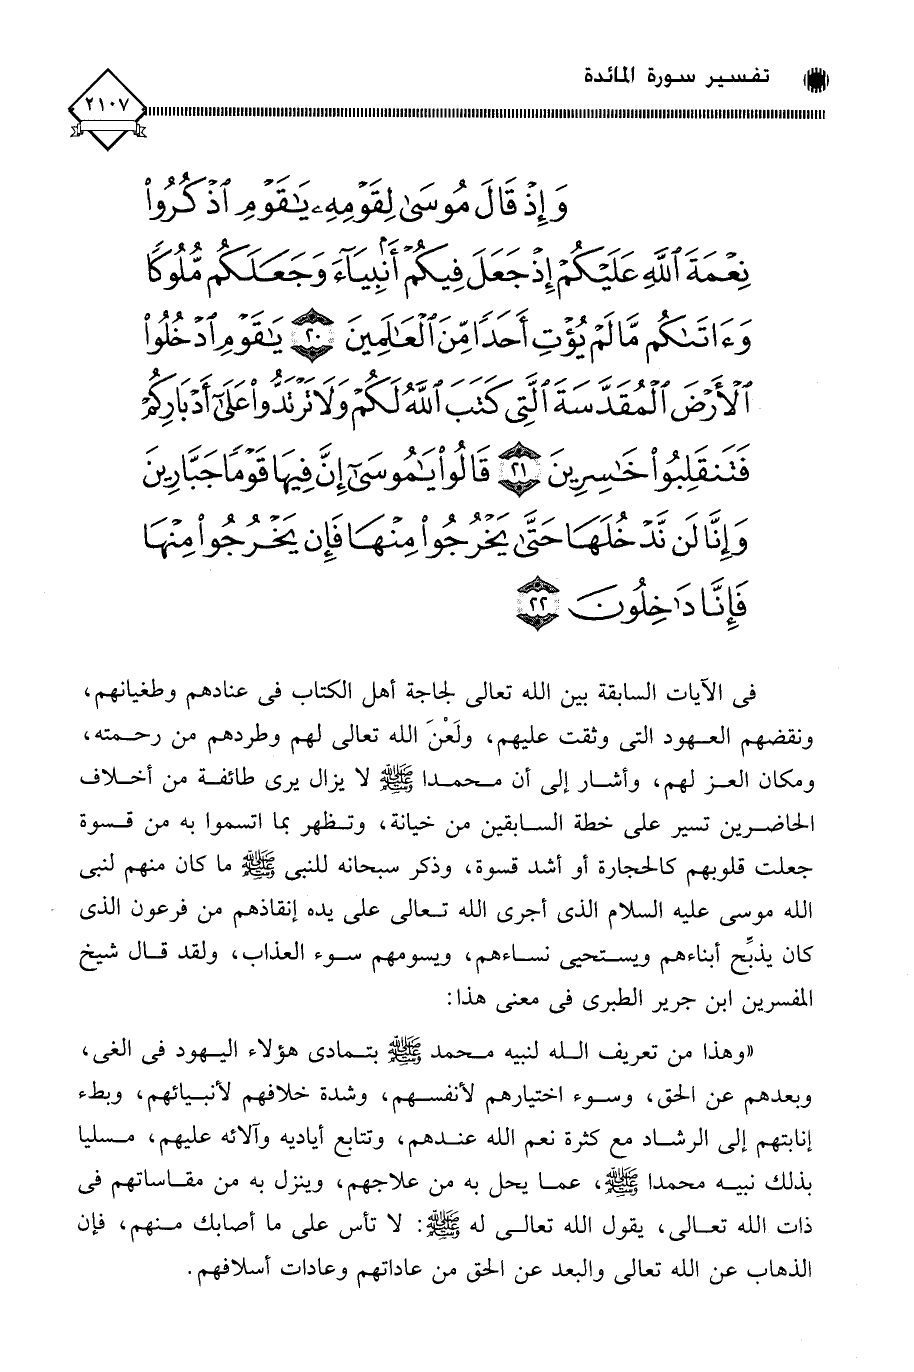 تفسير سورة المائدة
٢١٠٧
وَإِذْ قَالَ مُوسَىٰ لِقَوْمِهِۦ يَٰقَوْمِ ٱذْكُرُوا۟
نِعْمَةَ ٱللَّهِ عَلَيْكُمْ إِذْ جَعَلَ فِيكُمْ أَنۢبِيَآءَ وَجَعَلَكُم مُّلُوكًا
وَءَاتَىٰكُم مَّا لَمْ يُؤْتِ أَحَدًا مِّنَ ٱلْعَٰلَمِينَ ٢٠ يَٰقَوْمِ ٱدْخُلُوا۟
ٱلْأَرْضَ ٱلْمُقَدَّسَةَ ٱلَّتِى كَتَبَ ٱللَّهُ لَكُمْ وَلَا تَرْتَدُّوا۟ عَلَىٰٓ أَدْبَارِكُمْ
فَتَنقَلِبُوا۟ خَٰسِرِينَ ٢١ قَالُوا۟ يَٰمُوسَىٰٓ إِنَّ فِيهَا قَوْمًا جَبَّارِينَ
وَإِنَّا لَن نَّدْخُلَهَا حَتَّىٰ يَخْرُجُوا۟ مِنْهَا فَإِن يَخْرُجُوا۟ مِنْهَا
فَإِنَّا دَٰخِلُونَ ٢٢
فى الآيات السابقة بين الله تعالى لجاجة أهل الكتاب فى عنادهم وطغيانهم،
ونقضهم العهود التى وثقت عليهم، ولَعْنَ الله تعالى لهم وطردهم من رحمته،
ومكان العز لهم، وأشار إلى أن محمدا ﷺ لا يزال يرى طائفة من أخلاف
الحاضرين تسير على خطة السابقين من خيانة، وتظهر بما اتسموا به من قسوة
جعلت قلوبهم كالحجارة أو أشد قسوة، وذكر سبحانه للنبى ﷺ ما كان منهم لنبى
الله موسى عليه السلام الذى أجرى الله تعالى على يده إنقاذهم من فرعون الذى
كان يذبِّح أبناءهم ويستحيى نساءهم، ويسومهم سوء العذاب، ولقد قال شيخ
المفسرين ابن جرير الطبرى فى معنى هذا:
«وهذا من تعريف الله لنبيه محمد ﷺ بتمادى هؤلاء اليهود فى الغى،
وبعدهم عن الحق، وسوء اختيارهم لأنفسهم، وشدة خلافهم لأنبيائهم، وبطء
إنابتهم إلى الرشاد مع كثرة نعم الله عندهم، وتتابع أياديه وآلائه عليهم، مسليا
بذلك نبيه محمدا ﷺ، عما يحل به من علاجهم، وينزل به من مقاساتهم فى
ذات الله تعالى، يقول الله تعالى له ﷺ: لا تأس على ما أصابك منهم، فإن
الذهاب عن الله تعالى والبعد عن الحق من عاداتهم وعادات أسلافهم.